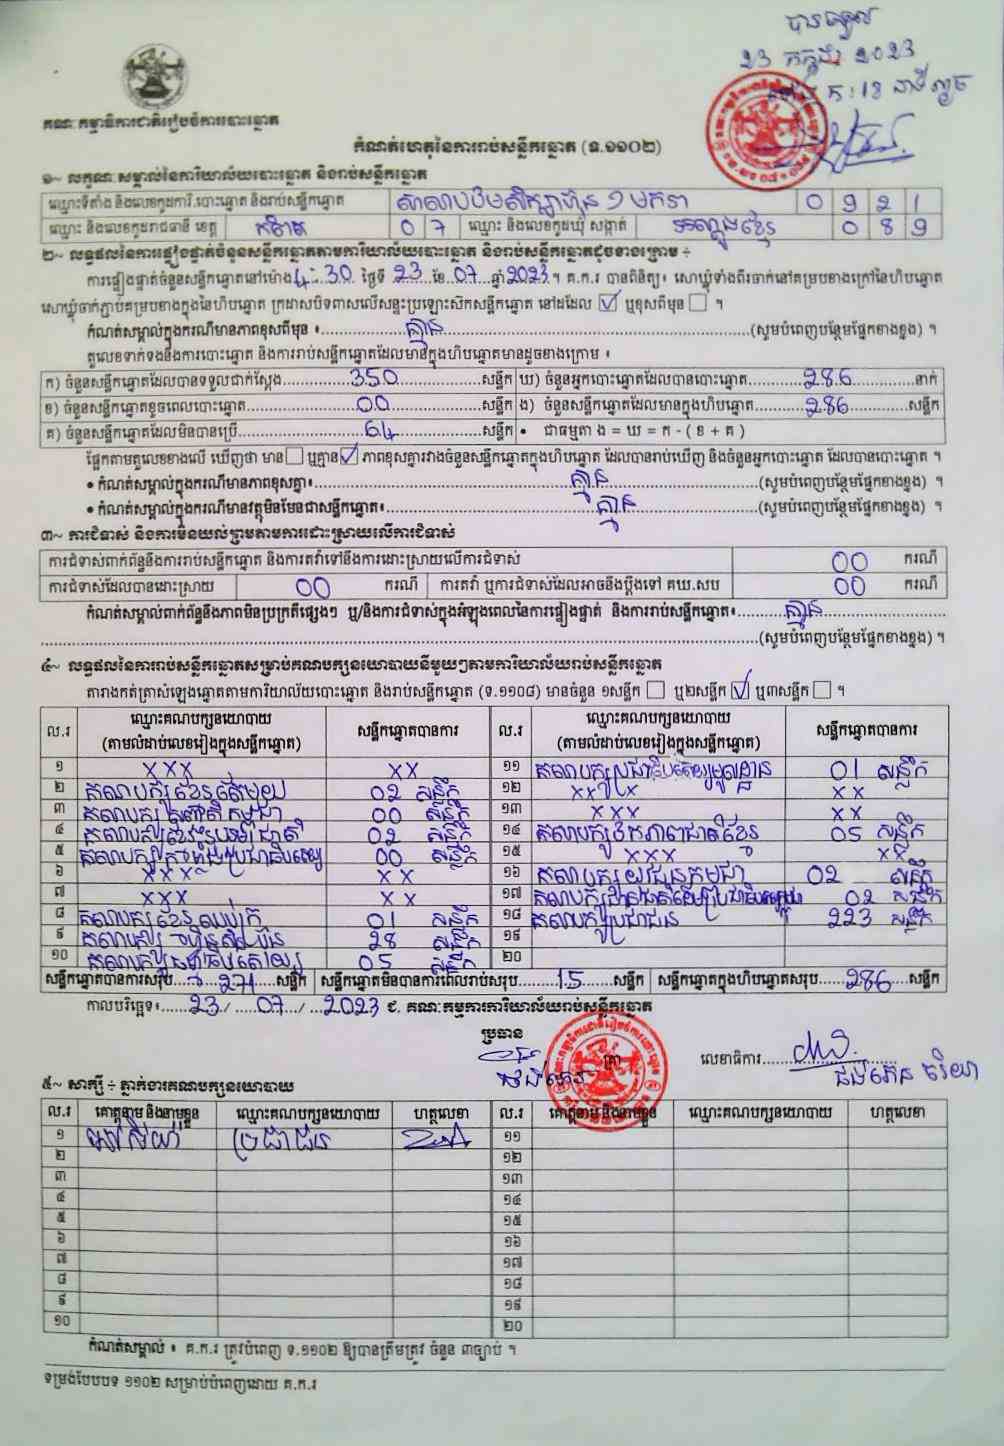 បានទទួល
23 កក្កដា 2023
គណៈកម្មាធិការជាតិរៀបចំការបោះឆ្នោត
កំណត់ហេតុនៃការរាប់សន្លឹកឆ្នោត (ទ.១១០២)
១~ លក្ខណៈសម្គាល់នៃការិយាល័យបោះឆ្នោត និងរាប់សន្លឹកឆ្នោត
ឈ្មោះទីតាំង និងលេខកូដការិ.បោះឆ្នោត និងរាប់សន្លឹកឆ្នោត 0 9 2 1
ឈ្មោះ និងលេខកូដរាជធានី ខេត្ត កំពត 0 7 ឈ្មោះ និងលេខកូដឃុំ សង្កាត់ 0 8 9
២~ លទ្ធផលនៃការផ្ទៀងផ្ទាត់ចំនួនសន្លឹកឆ្នោតតាមការិយាល័យបោះឆ្នោត និងរាប់សន្លឹកឆ្នោតដូចខាងក្រោម ÷
ការផ្ទៀងផ្ទាត់ចំនួនសន្លឹកឆ្នោតនៅម៉ោង 4:30 ថ្ងៃទី 23 ខែ 07 ឆ្នាំ 2023។ គ.ក.រ បានពិនិត្យ៖ សោឃ្លុំទាំងពីរចាក់នៅគម្របខាងក្រៅនៃហិបឆ្នោត
សោឃ្លុំចាក់ភ្ជាប់គម្របខាងក្នុងនៃហិបឆ្នោត ក្រដាសបិទពាសលើសន្ទះប្រឡោះសិកសន្លឹកឆ្នោត នៅដដែល ☑ ឬខុសពីមុន ☐ ។
កំណត់សម្គាល់ក្នុងករណីមានភាពខុសពីមុន ៖ គ្មាន (សូមបំពេញបន្ថែមផ្នែកខាងខ្នង) ។
តួលេខទាក់ទងនឹងការបោះឆ្នោត និងការរាប់សន្លឹកឆ្នោតដែលមានក្នុងហិបឆ្នោតមានដូចខាងក្រោម ៖
ក) ចំនួនសន្លឹកឆ្នោតដែលបានទទួលជាក់ស្តែង 350 សន្លឹក ឃ) ចំនួនអ្នកបោះឆ្នោតដែលបានបោះឆ្នោត 286 នាក់
ខ) ចំនួនសន្លឹកឆ្នោតខូចពេលបោះឆ្នោត 00 សន្លឹក ង) ចំនួនសន្លឹកឆ្នោតដែលមានក្នុងហិបឆ្នោត 286 សន្លឹក
គ) ចំនួនសន្លឹកឆ្នោតដែលមិនបានប្រើ 64 សន្លឹក • ជាធម្មតា ង = ឃ = ក - ( ខ + គ )
ផ្អែកតាមតួលេខខាងលើ ឃើញថា មាន ☐ ឬគ្មាន ☑ ភាពខុសគ្នារវាងចំនួនសន្លឹកឆ្នោតក្នុងហិបឆ្នោត ដែលបានរាប់ឃើញ និងចំនួនអ្នកបោះឆ្នោត ដែលបានបោះឆ្នោត ។
• កំណត់សម្គាល់ក្នុងករណីមានភាពខុសគ្នា៖ គ្មាន (សូមបំពេញបន្ថែមផ្នែកខាងខ្នង) ។
• កំណត់សម្គាល់ក្នុងករណីមានវត្ថុមិនមែនជាសន្លឹកឆ្នោត៖ គ្មាន (សូមបំពេញបន្ថែមផ្នែកខាងខ្នង) ។
៣~ ការជំទាស់ និងការមិនយល់ព្រមតាមការដោះស្រាយលើការជំទាស់
ការជំទាស់ពាក់ព័ន្ធនឹងការរាប់សន្លឹកឆ្នោត និងការតវ៉ាទៅនឹងការដោះស្រាយលើការជំទាស់ 00 ករណី
ការជំទាស់ដែលបានដោះស្រាយ 00 ករណី ការតវ៉ា ឬការជំទាស់ដែលអាចនឹងប្តឹងទៅ គឃ.សប 00 ករណី
កំណត់សម្គាល់ពាក់ព័ន្ធនឹងភាពមិនប្រក្រតីផ្សេងៗ ឬ/និងការជំទាស់ក្នុងអំឡុងពេលនៃការផ្ទៀងផ្ទាត់ និងការរាប់សន្លឹកឆ្នោត៖ គ្មាន
(សូមបំពេញបន្ថែមផ្នែកខាងខ្នង) ។
៤~ លទ្ធផលនៃការរាប់សន្លឹកឆ្នោតសម្រាប់គណបក្សនយោបាយនីមួយៗតាមការិយាល័យរាប់សន្លឹកឆ្នោត
តារាងកត់ត្រាសំឡេងឆ្នោតតាមការិយាល័យបោះឆ្នោត និងរាប់សន្លឹកឆ្នោត (ទ.១១០៨) មានចំនួន ១សន្លឹក ☐ ឬ២សន្លឹក ☑ ឬ៣សន្លឹក ☐ ។
ល.រ ឈ្មោះគណបក្សនយោបាយ (តាមលំដាប់លេខរៀងក្នុងសន្លឹកឆ្នោត) សន្លឹកឆ្នោតបានការ ល.រ ឈ្មោះគណបក្សនយោបាយ (តាមលំដាប់លេខរៀងក្នុងសន្លឹកឆ្នោត) សន្លឹកឆ្នោតបានការ
១ xxx xx ១១ គណបក្សប្រជាធិបតេយ្យមូលដ្ឋាន 01 សន្លឹក
២ គណបក្សខ្មែរតែមួយ 02 សន្លឹក ១២ xxx xx
៣ គណបក្ស កម្ពុជា 00 សន្លឹក ១៣ xxx xx
៤ គណបក្ស 02 សន្លឹក ១៤ គណបក្សឯកភាពជាតិខ្មែរ 05 សន្លឹក
៥ គណបក្ស 00 សន្លឹក ១៥ xxx xx
៦ xxx xx ១៦ គណបក្សយុវជនកម្ពុជា 02 សន្លឹក
៧ xxx xx ១៧ គណបក្ស 02 សន្លឹក
៨ គណបក្សខ្មែរ 01 សន្លឹក ១៨ គណបក្សប្រជាជន 223 សន្លឹក
៩ គណបក្សហ្វ៊ុនស៊ិនប៉ិច 28 សន្លឹក ១៩
១០ គណបក្ស 05 សន្លឹក ២០
សន្លឹកឆ្នោតបានការសរុប 271 សន្លឹក សន្លឹកឆ្នោតមិនបានការពេលរាប់សរុប 15 សន្លឹក សន្លឹកឆ្នោតក្នុងហិបឆ្នោតសរុប 286 សន្លឹក
កាលបរិច្ឆេទ៖ 23 / 07 / 2023 ជ. គណៈកម្មការការិយាល័យរាប់សន្លឹកឆ្នោត
ប្រធាន
ត្រា លេខាធិការ
៥~ សាក្សី ÷ ភ្នាក់ងារគណបក្សនយោបាយ
ល.រ គោត្តនាម និងនាមខ្លួន ឈ្មោះគណបក្សនយោបាយ ហត្ថលេខា ល.រ គោត្តនាម និងនាមខ្លួន ឈ្មោះគណបក្សនយោបាយ ហត្ថលេខា
១ ប្រជាជន ១១
២ ១២
៣ ១៣
៤ ១៤
៥ ១៥
៦ ១៦
៧ ១៧
៨ ១៨
៩ ១៩
១០ ២០
កំណត់សម្គាល់ ៖ គ.ក.រ ត្រូវបំពេញ ទ.១១០២ ឱ្យបានត្រឹមត្រូវ ចំនួន ៣ច្បាប់ ។
ទម្រង់បែបបទ ១១០២ សម្រាប់បំពេញដោយ គ.ក.រ